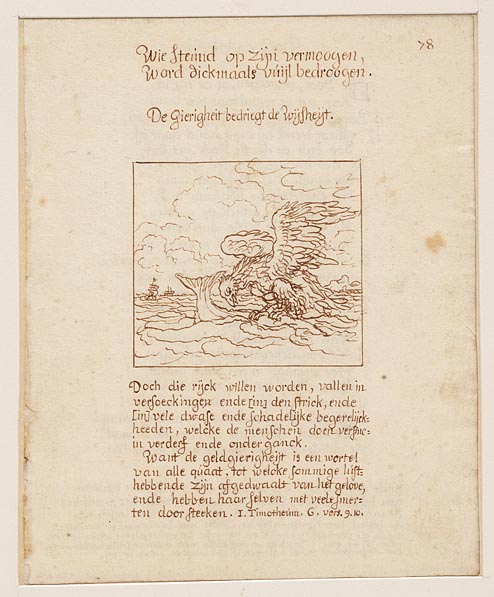 78
Wie steund op zijn vermoogen,
Word dickmaals vuijl bedroogen.
De Gierigheit bedriegt de Wijsheijt.
Doch die rijck willen worden, vallen in
versoeckingen ende [in] den strick, ende
[in] vele dwase ende schadelijke begerelijck=
heeden, welcke de menschen doen versinc=
in verderf ende onderganck.
Want de geldgierigheijt is een wortel
van alle quaat, tot welcke sommige lust=
hebbende zijn afgedwaalt van het gelove,
ende hebben haar selven met veele smer=
ten doorsteeken. 1. Timotheum. 6. vers. 9. 10.